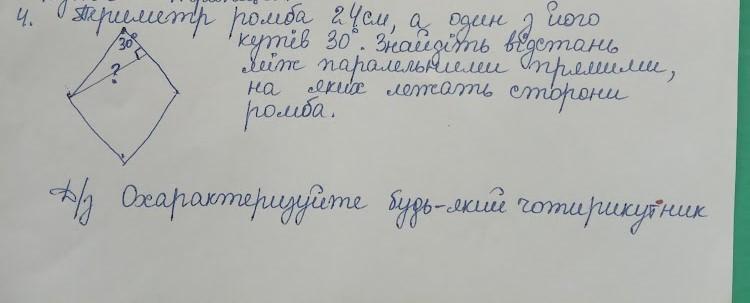 4. Периметр ромба 24см, а один з його
кутів 30°. Знайдіть відстань
між паралельними прямими,
на яких лежать сторони
ромба.
30°
?
Д/з Охарактеризуйте будь-який чотирикутник